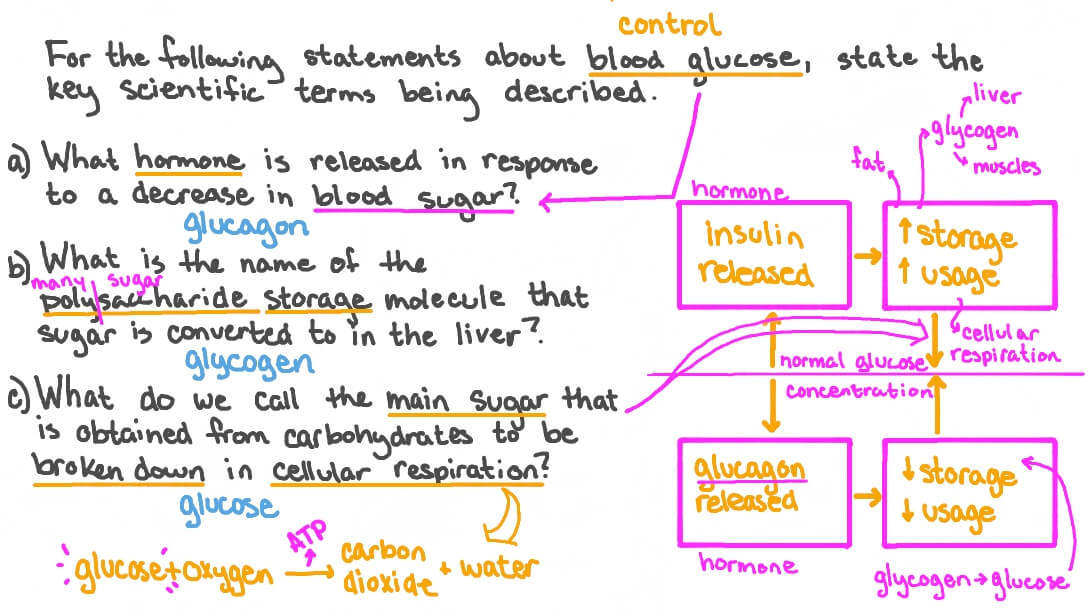 control
For the following statements about blood glucose, state the
key scientific terms being described.
a) What hormone is released in response
to a decrease in blood sugar?
glucagon
b) What is the name of the
many sugar
polysaccharide storage molecule that
sugar is converted to in the liver?
glycogen
c) What do we call the main sugar that
is obtained from carbohydrates to be
broken down in cellular respiration?
glucose
ATP
glucose + oxygen → carbon dioxide + water
liver
glycogen
muscles
fat
hormone
insulin
released
↑ storage
↑ usage
cellular
respiration
normal glucose
concentration
glucagon
released
hormone
↓ storage
↓ usage
glycogen → glucose